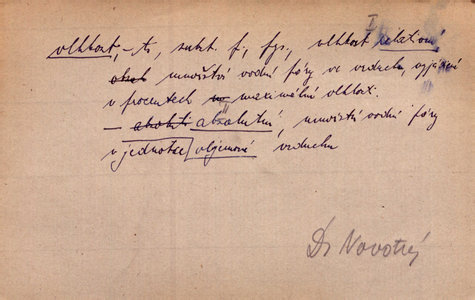 I
vlhkost, -ti, subst. f., fys., vlhkost relativní
množství vodní páry ve vzduchu, vyjádřené
v procentech maximální vlhkosti.
— absolutní, množství vodní páry
v jednotce objemové vzduchu
Dr Novotný